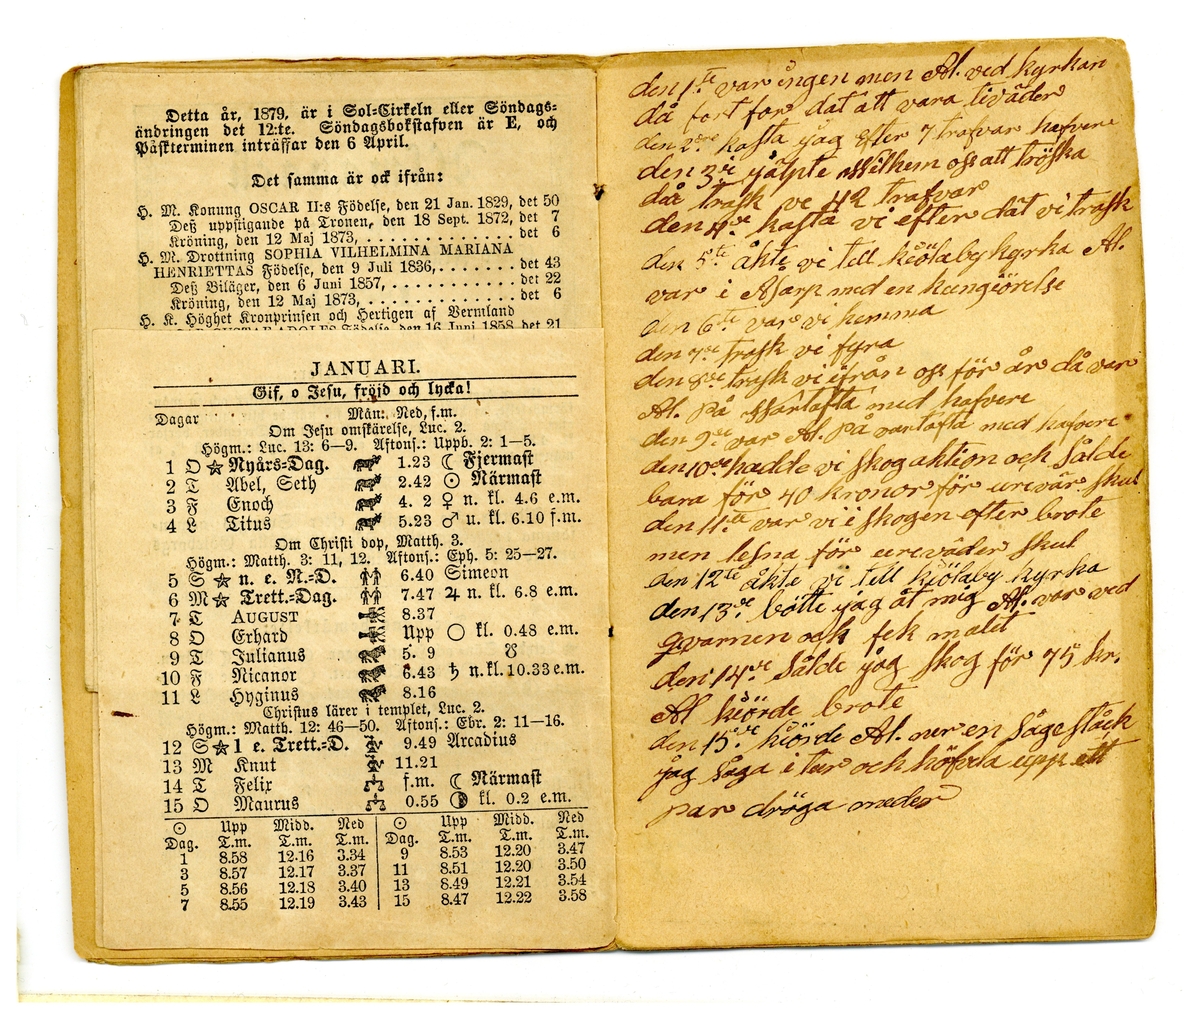 Detta år, 1879, är i Sol-Cirkeln eller Söndags-
ändringen det 12:te. Söndagsbokstafven är E, och
Påskterminen inträffar den 6 April.
Det samma är ock ifrån:
H. M. Konung OSCAR II:s Födelse, den 21 Jan. 1829, det 50
Deß uppstigande på Tronen, den 18 Sept. 1872, det 7
Kröning, den 12 Maj 1873, . . . . . . . . . . . . . . . det 6
H. M. Drottning SOPHIA VILHELMINA MARIANA
HENRIETTAS Födelse, den 9 Juli 1836, . . . . . . . . det 43
Deß Biläger, den 6 Juni 1857, . . . . . . . . . . . . . det 22
Kröning, den 12 Maj 1873, . . . . . . . . . . . . . . . det 6
H. K. Höghet Kronprinsen och Hertigen af Vermland
GUSTAF ADOLFS Födelse, den 16 Juni 1858, det 21
JANUARI.
Gif, o Jesu, fröjd och lycka!
Dagar Mån: Ned, f.m.
Om Jesu omskärelse, Luc. 2.
Högm.: Luc. 13: 6–9. Aftons.: Uppb. 2: 1–5.
1 O ☆ Nyårs-Dag. 1.23 ☾ Fjermast
2 T Abel, Seth 2.42 ☉ Närmast
3 F Enoch 4. 2 ♀ n. kl. 4.6 e.m.
4 L Titus 5.23 ♂ u. kl. 6.10 f.m.
Om Christi dop, Matth. 3.
Högm.: Matth. 3: 11, 12. Aftons.: Eph. 5: 25–27.
5 S ☆ n. e. N.-D. 6.40 Simeon
6 M ☆ Trett.-Dag. 7.47 ♃ n. kl. 6.8 e.m.
7 T AUGUST 8.37
8 O Erhard Upp ○ kl. 0.48 e.m.
9 T Julianus 5. 9 ☋
10 F Nicanor 6.43 ♄ n.kl.10.33 e.m.
11 L Hyginus 8.16
Christus lärer i templet, Luc. 2.
Högm.: Matth. 12: 46–50. Aftons.: Ebr. 2: 11–16.
12 S ☆ 1 e. Trett.-D. 9.49 Arcadius
13 M Knut 11.21
14 T Felix f.m. ☾ Närmast
15 O Maurus 0.55 kl. 0.2 e.m.
☉ Upp Midd. Ned ☉ Upp Midd. Ned
Dag. T.m. T.m. T.m. Dag. T.m. T.m. T.m.
1 8.58 12.16 3.34 9 8.53 12.20 3.47
3 8.57 12.17 3.37 11 8.51 12.20 3.50
5 8.56 12.18 3.40 13 8.49 12.21 3.54
7 8.55 12.19 3.43 15 8.47 12.22 3.58
den 1te var ingen men Al. ved kyrkan
då fort for dät att vara tiväder
den 2dre kasta jag efter 7 trafvar hafvere
den 3je jälpte Wilhem oss att tröska
där trask vi 42 trafvar
den 4de kasta vi efter dät vi trask
den 5te åkte vi till kiölabykyrka Al.
var i Asarp med en kungiörelse
den 6te var vi hemma
den 7de trask vi fyra
den 8de trask vi ifrån oss för år då var
Al. på Vartofta med hafvere
den 9de var Al. på vartofta med hafvere
den 10de hadde vi skog aktion och sålde
bara för 40 kronor för urevär skul
den 11te var vi i skogen efter brote
men lesna för ureväder skul
den 12te åkte vi till kiölaby kyrka
den 13de bötte jag åt mig Al. var ved
qvarnen och fek malet
den 14de sålde jag skog för 75 kr.
Al kiörde brote
den 15de kiörde Al. ner en sågestäck
jag såga i tur och höfvla upp ett
par dröga meder